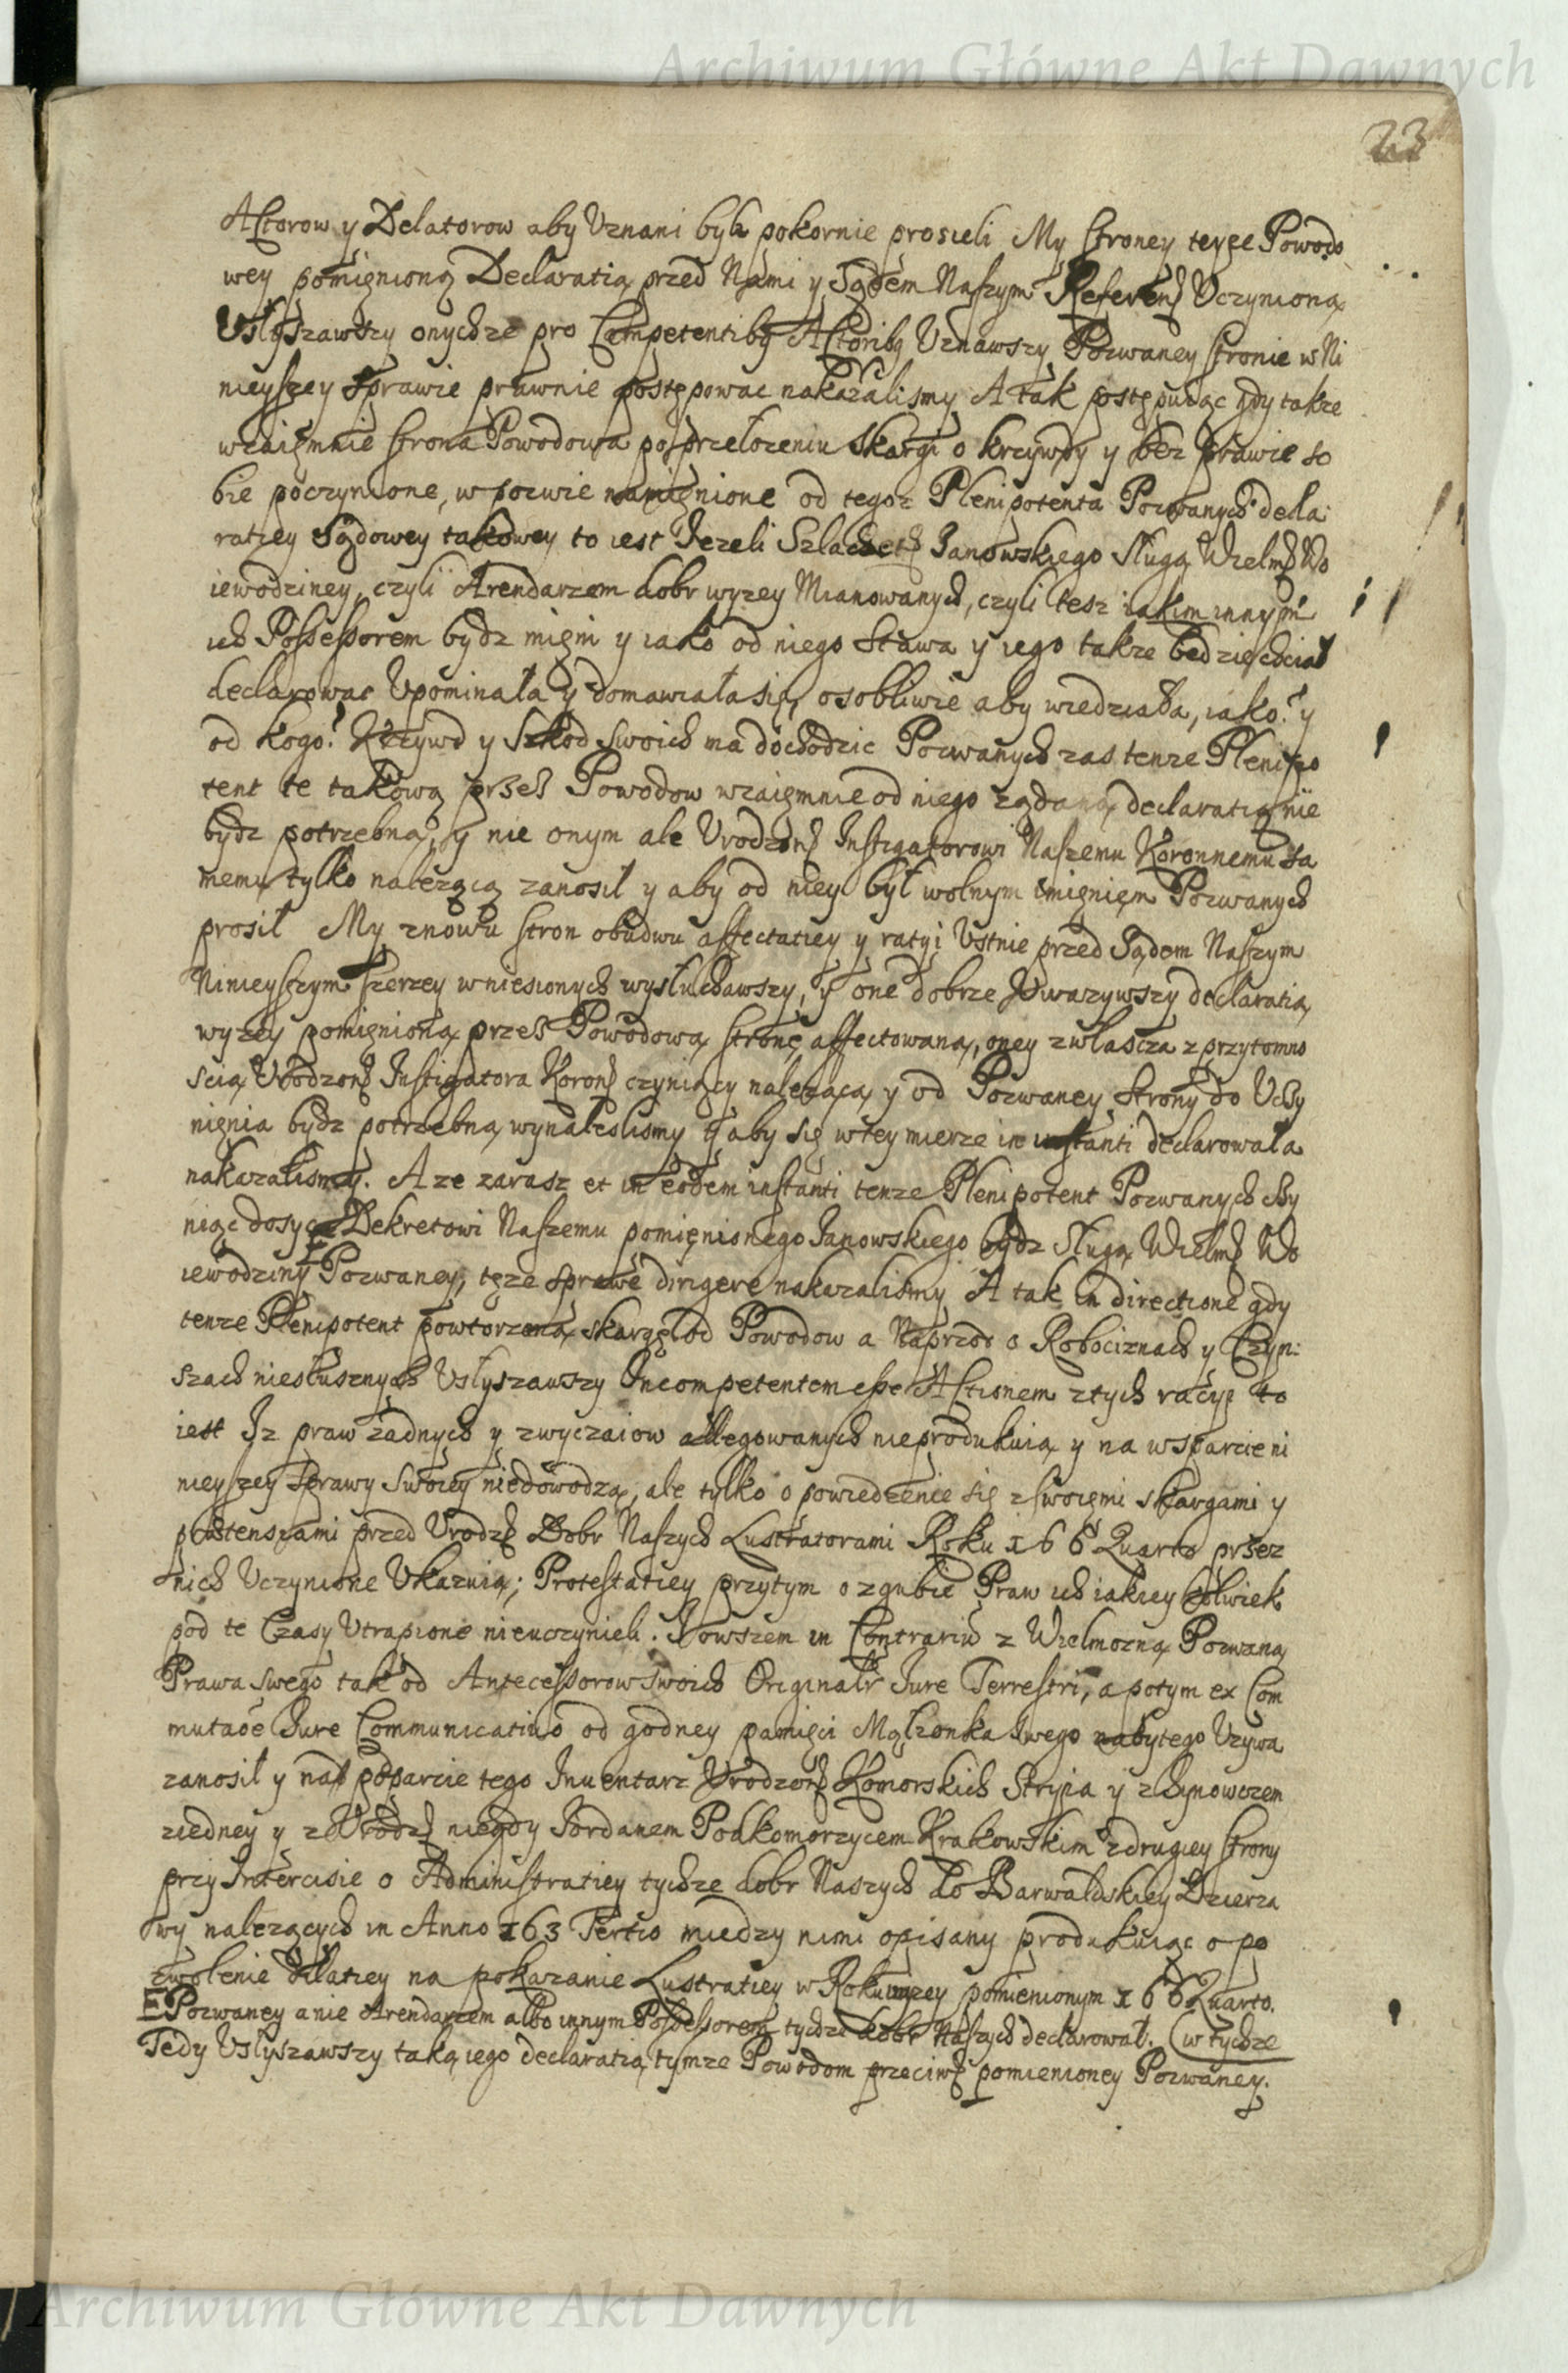 Archiwum Główne Akt Dawnych
23
Actorow y Delatorow aby Uznani byli pokornie prosieli My strony teyze Powodo
wey pomięnioną Declaratią przed Nami y Sądem Naszym Referend Uczynioną
Usłyszawszy onychze pro Competentibq Actoribq Uznawszy Pozwaney stronie w Ni
nieyszey sprawie prawnie postępowac nakazalismy A tak postępuiąc gdy takze
wzaięmnie strona Powodowa po przełozeniu skargi o krzywdy y bez prawie so
bie poczynione, w pozwie namięnione od tegoz Plenipotenta Pozwanych decla
ratiey Sądowey takowey to iest Jezeli Szlachetn Janowskiego Sługą Wielm Wo
iewodziney, czyli Arendarzem dobr wyzey Mianowanych, czyli tesz iakim innym
ich Possessorem bydz mięni y iako od niego Stawa y iego takze będzie chciał
declarowac Upominała y domawiała się, osobliwie aby wiedziała, iako? y
od kogo? Krzywd y Szkod swoich ma dochodzic Pozwanych zas tenze Plenipo
tent te takową przes Powodow wzaięmnie od niego ządaną declaratią nie
bydz potrzebną, y nie onym ale Urodzon Instigatorowi Naszemu Koronnemu sa
memu tylko nalezącą zanosił y aby od niey był wolnym imięnięm Pozwanych
prosił My znowu stron obudwu affectatiey y ratyi Ustnie przed Sądem Naszym
Ninieyszym szerzey wniesionych wysłuchawszy, y one dobrze Uwazywszy declaratią
wyzey pomięnioną przes Powodową stronę affectowaną, oney zwłascza z przytomno
scią Urodzon Instigatora Koron czyniący nalezącą y od Pozwaney Strony do Uczy
nięnia bydz potrzebną wynaleslismy y aby się w tey mierze in instanti declarowała
nakazalismy. A ze zarasz et in eodem instanti tenze Plenipotent Pozwanych czy
niąc dosyc Dekretowi Naszemu pomięnionego Janowskiego bydz Sługą Wielm Wo
iewodziny Pozwaney, tęze sprawę dirigere nakazalismy A tak in directione gdy
tenze Plenipotent powtorzoną skargę od Powodow a Naprzod o Robociznach y Czyn:
szach niesłusznych Usłyszawszy Incompetentem esse Actionem z tych racyi to
iest Iz praw zadnych y zwyczaiow allegowanych nieprodukuią y na wsparcie ni
nieyszey sprawy swoiey niedowodzą, ale tylko opowiedzenie się z swoięmi skargami y
prætensyami przed Urodz Dobr Naszych Lustratorami Roku 166 Quarto przez
nich Uczynione Ukazuią; Protestatiey przytym o zgubie Praw ich iakiey kolwiek
pod te Czasy Utrapione nieuczynieli. Jowszem in Contrariu z Wielmozną Pozwaną
Prawa swego tak od Antecessorow swoich Originalr Jure Terrestri, a potym ex Com
mutaõe Jure Communicatiuo od godney pamięci Małzonka swego nabytego Uzywa
zanosił y na podparcie tego Inuentarz Urodzon Komorskich Stryia y z Synowcem
ziedney y z Urodz niegdy Jordanem Podkomorzycem Krakowskim z drugiey strony
przy Intercisie o Administratiey tychze dobr Naszych do Barwałdskiey Dzierza
wy nalezących in Anno 163 Tertio miedzy nimi opisany produkuiąc o po
zwolenie dilatiey na pokazanie Lustratiey w Roku wyzey pomienionym 166 Quarto.
Pozwaney a nie Arendarzem albo innym Possessorem tychze dobr Naszych declarował. (w tychze
Tedy Usłyszawszy taką iego declaratią tymze Powodom przeciw pomienioney Pozwaney.
Archiwum Główne Akt Dawnych